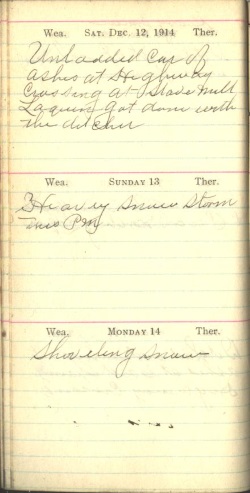 Wea. SAT. DEC. 12, 1914 Ther.
Unloaded Car of
ashes at Highway
Crossing at Stave Mill
Laquin, Got done with
the ditcher
Wea. SUNDAY 13 Ther.
Heavy Snow Storm
this Pm
Wea. MONDAY 14 Ther.
Shoveling Snow